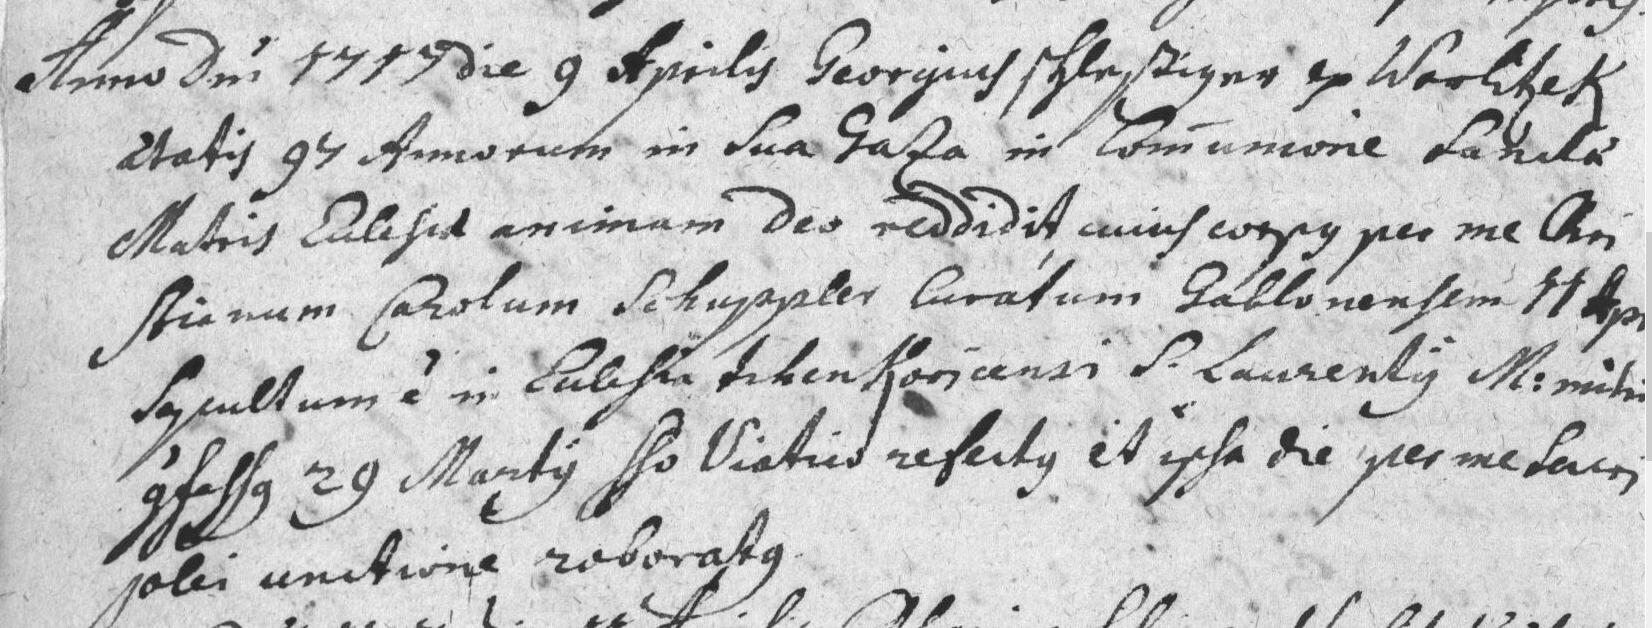 Anno Dni 1717 die 9 Aprilis Georgius Schlesziger ex Worlitzek
ætatis 97 Annorum in Sua Gaza in Com̄unione Sanctæ
Matris Eclesiæ animam Deo reddidit, cuius corpy per me Chri
stianum Carolum Schuppler Curatum Gablonensem 11 Apr
Sepultum ê in Eclesia Schenkoricensi S. Laurentÿ M: mihi
9fessg 29 Martÿ sso Viatico refectg et ipsa die per me Sacri
olei unctione roboratg